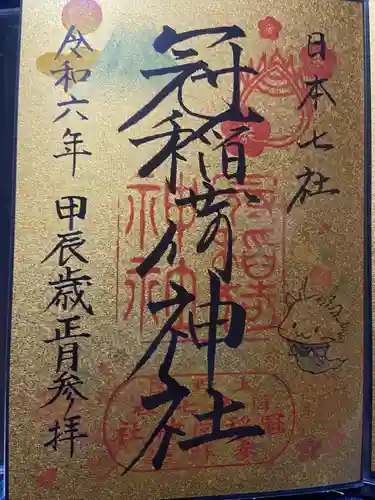 日本七社
冠稲荷神社
令和六年 甲辰歳正月参拝